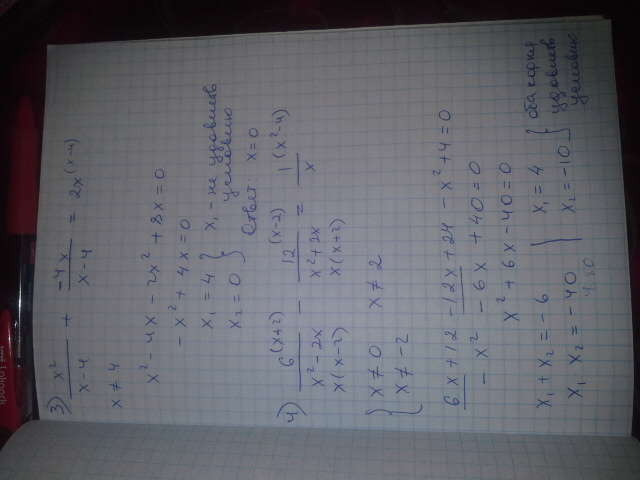 3) x²/(x-4) + -4x/(x-4) = 2x (x-4)
x ≠ 4
x² - 4x - 2x² + 8x = 0
- x² + 4x = 0
x₁ = 4 } x₁ - не удовлетв
x₂ = 0 } условию
Ответ: x = 0
4) 6 (x+2)/(x² - 2x) - 12 (x-2)/(x² + 2x) = 1 (x²-4)/x
x(x-2) x(x+2)
{ x ≠ 0 x ≠ 2
x ≠ -2
6x + 12 - 12x + 24 - x² + 4 = 0
- x² - 6x + 40 = 0
x² + 6x - 40 = 0
x₁ + x₂ = -6 } x₁ = 4 } оба корня
x₁ x₂ = -40 } x₂ = -10 } удовлетв
условию